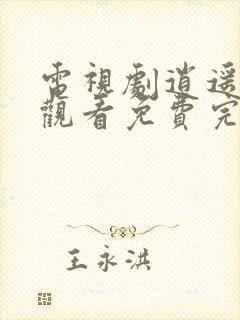 電視劇逍遥
觀看免費完
王永洪